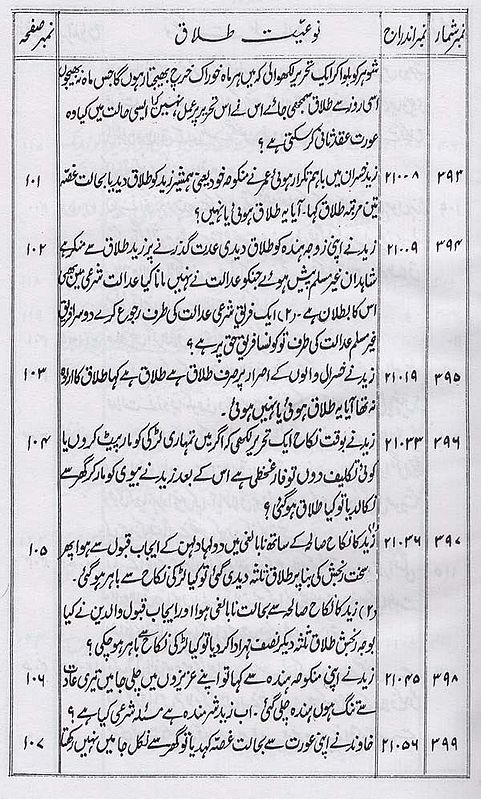 نمبر شمار نمبر اندراج نوعیت طلاق نمبر صفحہ
شوہر کو بلوا کر ایک تحریر لکھوالی کہ میں ہر ماہ خوراک خرچ بھیجتا رہوں گا جس ماہ نہ بھیجوں
اسی روز سے طلاق سمجھی جائے اس نے اس تحریر پر عمل نہیں کیا ایسی حالت میں کیا وہ
عورت عقد ثانی کر سکتی ہے ؟
۳۹۳ ۲۱۰۰۸ زید خسران میں باہم تکرار ہوئی عمر نے منکوحہ خود یعنی ہمشیر زید کو طلاق دیدیا بحالت غصہ ۱۰۱
تین مرتبہ طلاق کہا۔ آیا یہ طلاق ہوئی یا نہیں؟
۳۹۴ ۲۱۰۰۹ زید نے اپنی زوجہ ہندہ کو طلاق دیدی عدت گذرنے پر زید طلاق سے منکر ہے ۱۰۲
شاہدان غیر مسلم پیش ہوئے جنکو عدالت نے نہیں مانا کیا عدالت شرعی میں بھی
اس کا بطلان ہے۔ (۲) ایک فریق شرعی عدالت کی طرف رجوع کرے دوسرا فریق
غیر مسلم عدالت کی طرف تو کونسا فریق حق پر ہے ؟
۳۹۵ ۲۱۰۱۹ زید نے خسرال والوں کے اصرار پر صرف طلاق ہے طلاق ہے کہا طلاق کا ارادہ ۱۰۳
نہ تھا آیا یہ طلاق ہوئی یا نہیں ہوئی۔
۳۹۶ ۲۱۰۳۳ زید نے بوقت نکاح ایک تحریر لکھی کہ اگر میں تمہاری لڑکی کو مار پیٹ کروں یا ۱۰۴
کوئی تکلیف دوں تو فارغخطی ہے اس کے بعد زید نے بیوی کو مار کر گھر سے
نکالدیا تو کیا طلاق ہو گئی ؟
۳۹۷ ۲۱۰۳۶ زید کا نکاح صالحہ کے ساتھ نابالغی میں دولہا دلہن کے ایجاب قبول سے ہوا پھر ۱۰۵
سخت رنجش کی بنا پر طلاق ثلثہ دیدی گئی تو کیا لڑکی نکاح سے باہر ہو گئی۔
(۲) زید کا نکاح صالحہ سے بحالت نابالغی ہوا اور ایجاب قبول والدین نے کیا
بوجہ رنجش طلاق ثلثہ دیکر نصف مہر ادا کر دیا تو کیا لڑکی نکاح سے باہر ہو چکی ؟
۳۹۸ ۲۱۰۴۵ زید نے اپنی منکوحہ ہندہ سے کہا تو اپنے عزیزوں میں چلی جا میں تیری عادت ۱۰۶
سے تنگ ہوں ہندہ چلی گئی۔ اب زید شرمندہ ہے مسئلہ شرعی کیا ہے ؟
۳۹۹ ۲۱۰۵۶ خاوند نے اپنی عورت سے بحالت غصہ کہدیا تو گھر سے نکل جا میں نہیں رکھتا ۱۰۷